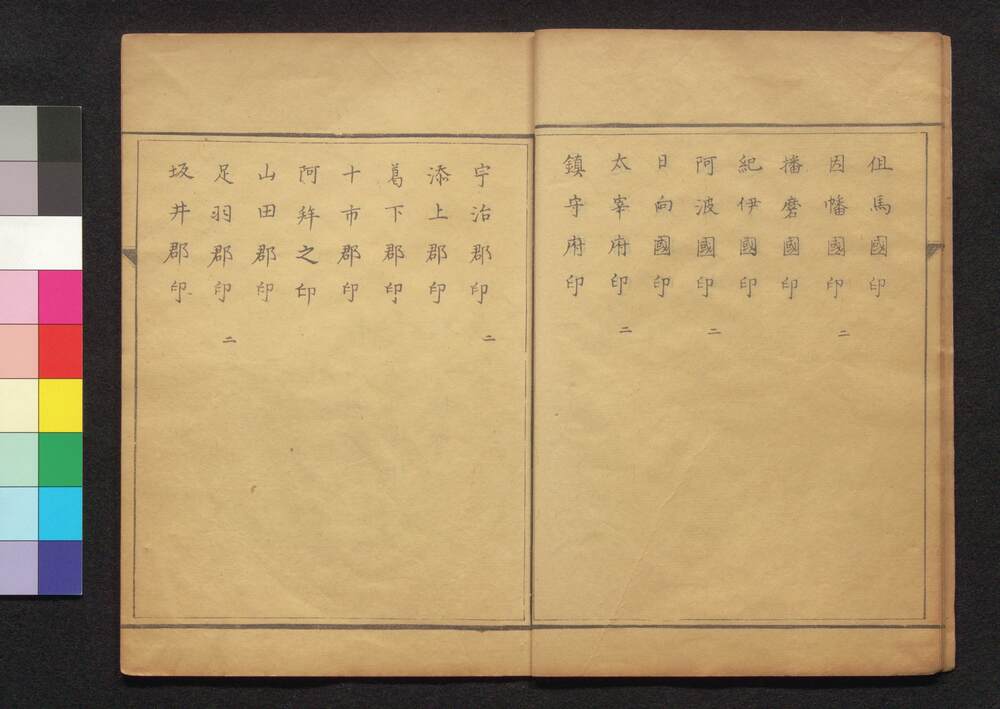 伹馬國印
因幡國印 二
播磨國印
紀伊國印
阿波國印 二
日向國印
太宰府印 二
鎮守府印
宇治郡印 二
添上郡印
葛下郡印
十市郡印
阿拜之印
山田郡印
足羽郡印 二
坂井郡印